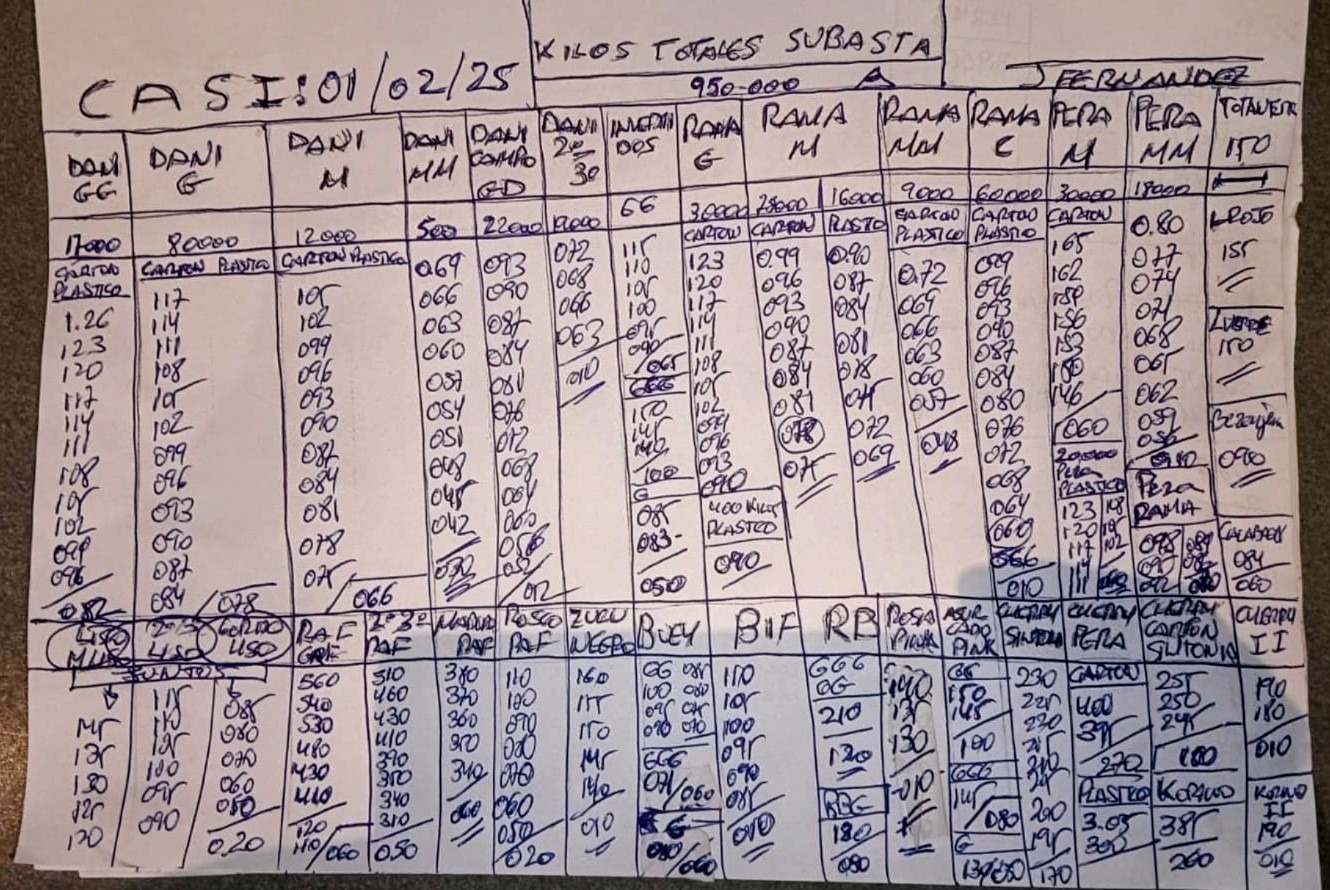 KILOS TOTALES SUBASTA
CASI: 01/02/25
950-000 A
J FERNANDEZ
DANI GG
DANI G
DANI M
DANI MM
DANI CAMPO GD
DANI 20/30
RAMA G
RAMA M
RAMA MM
RAMA C
PERA M
PERA MM
150
17000
80000
12000
500
22000
66
30000
16000
9000
60000
30000
18000
CARTON PLASTICO
CARTON PLASTICO
CARTON PLASTICO
CARTON
CARTON
PLASTICO
CARTON PLASTICO
CARTON PLASTICO
CARTON
1.26
123
120
117
114
111
108
105
102
099
096
082
117
114
111
108
105
102
099
096
093
090
087
084
078
105
102
099
096
093
090
087
084
081
078
075
066
069
066
063
060
057
054
051
048
045
042
093
090
087
084
081
076
072
068
064
060
056
052
012
072
068
066
063
010
115
110
105
100
095
090
065
666
150
145
140
100
G
085
083
050
123
120
117
114
111
108
105
102
099
096
093
090
400 KILOS PLASTICO
090
0.99
096
093
090
087
084
081
078
075
0.90
087
084
081
078
075
072
069
0.72
069
066
063
060
057
048
099
096
093
090
087
084
080
076
072
068
064
060
056
010
165
162
159
156
153
150
146
060
20.000
PERA PLASTICO
123 108
120 105
117 102
111
0.80
077
074
071
068
065
062
059
056
PERA RAMA
098
L ROJO
155
L VERDE
150
090
084
060
LISO
GORDO LISO
RAF
RAF
RAF
ROSCO RAF
ZULU NEGRO
BUEY
BIF
RB
ROSA PINK
CHERRY SINTONIA
CHERRY PERA
CHERRY CARTON SINTONIA
CHERRY II
JUNTOS
145
135
130
125
120
115
110
105
100
095
090
085
080
070
060
050
0.20
560
540
530
480
430
410
120
110/060
510
460
430
410
390
350
340
310
0.50
380
370
360
350
340
060
110
100
090
080
070
060
050
020
160
155
150
145
140
010
GG 085
100 080
095 075
090 070
GGG
071/060
G
060
110
105
100
095
090
085
010
GGG
GG
210
120
RBG
180
080
140
135
130
010
GG
150
145
100
GGG
145
080
G
230
225
220
215
210
200
195
170
CARTON
400
395
270
PLASTICO
3.05
300
255
250
245
100
385
260
190
180
010
II
190
010